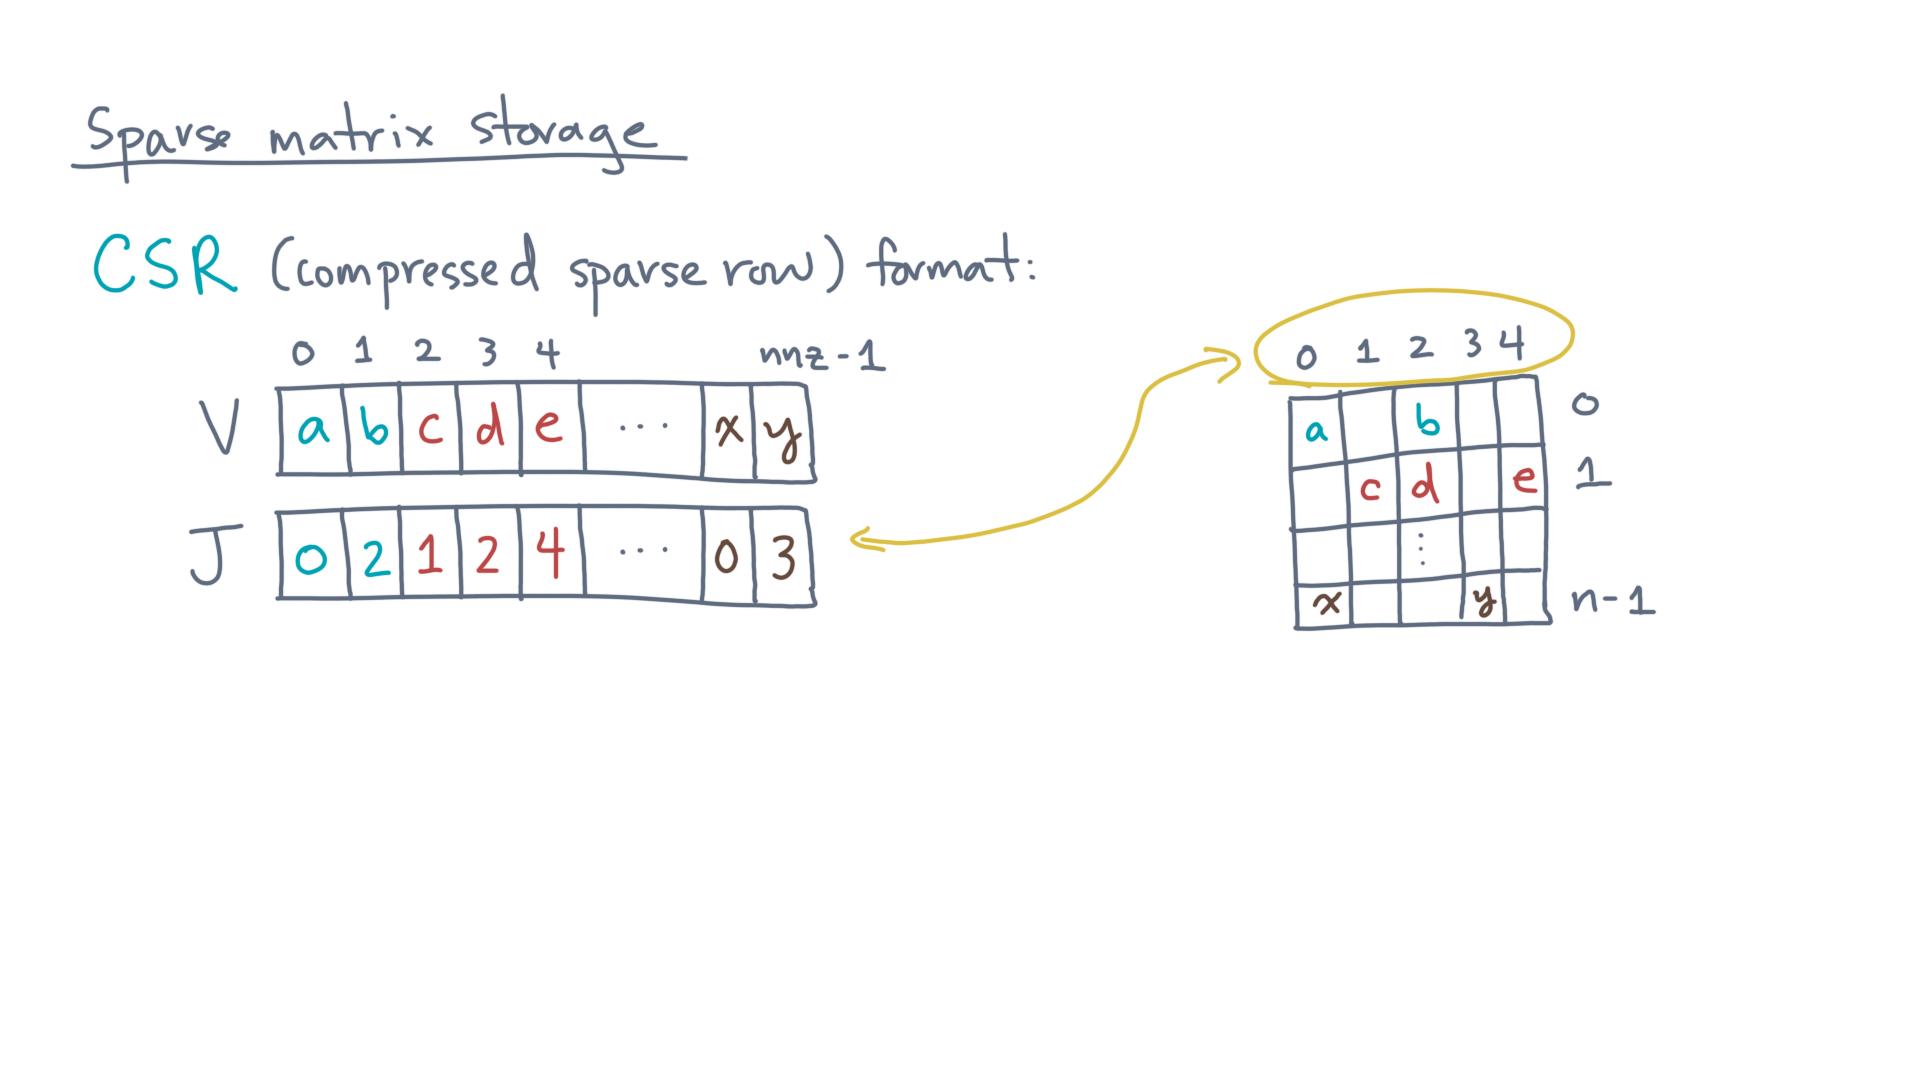 Sparse matrix storage
CSR (compressed sparse row) format:
0 1 2 3 4 nnz-1
V a b c d e ... x y
J 0 2 1 2 4 ... 0 3
0 1 2 3 4
a b 0
c d e 1
⋮
x y n-1